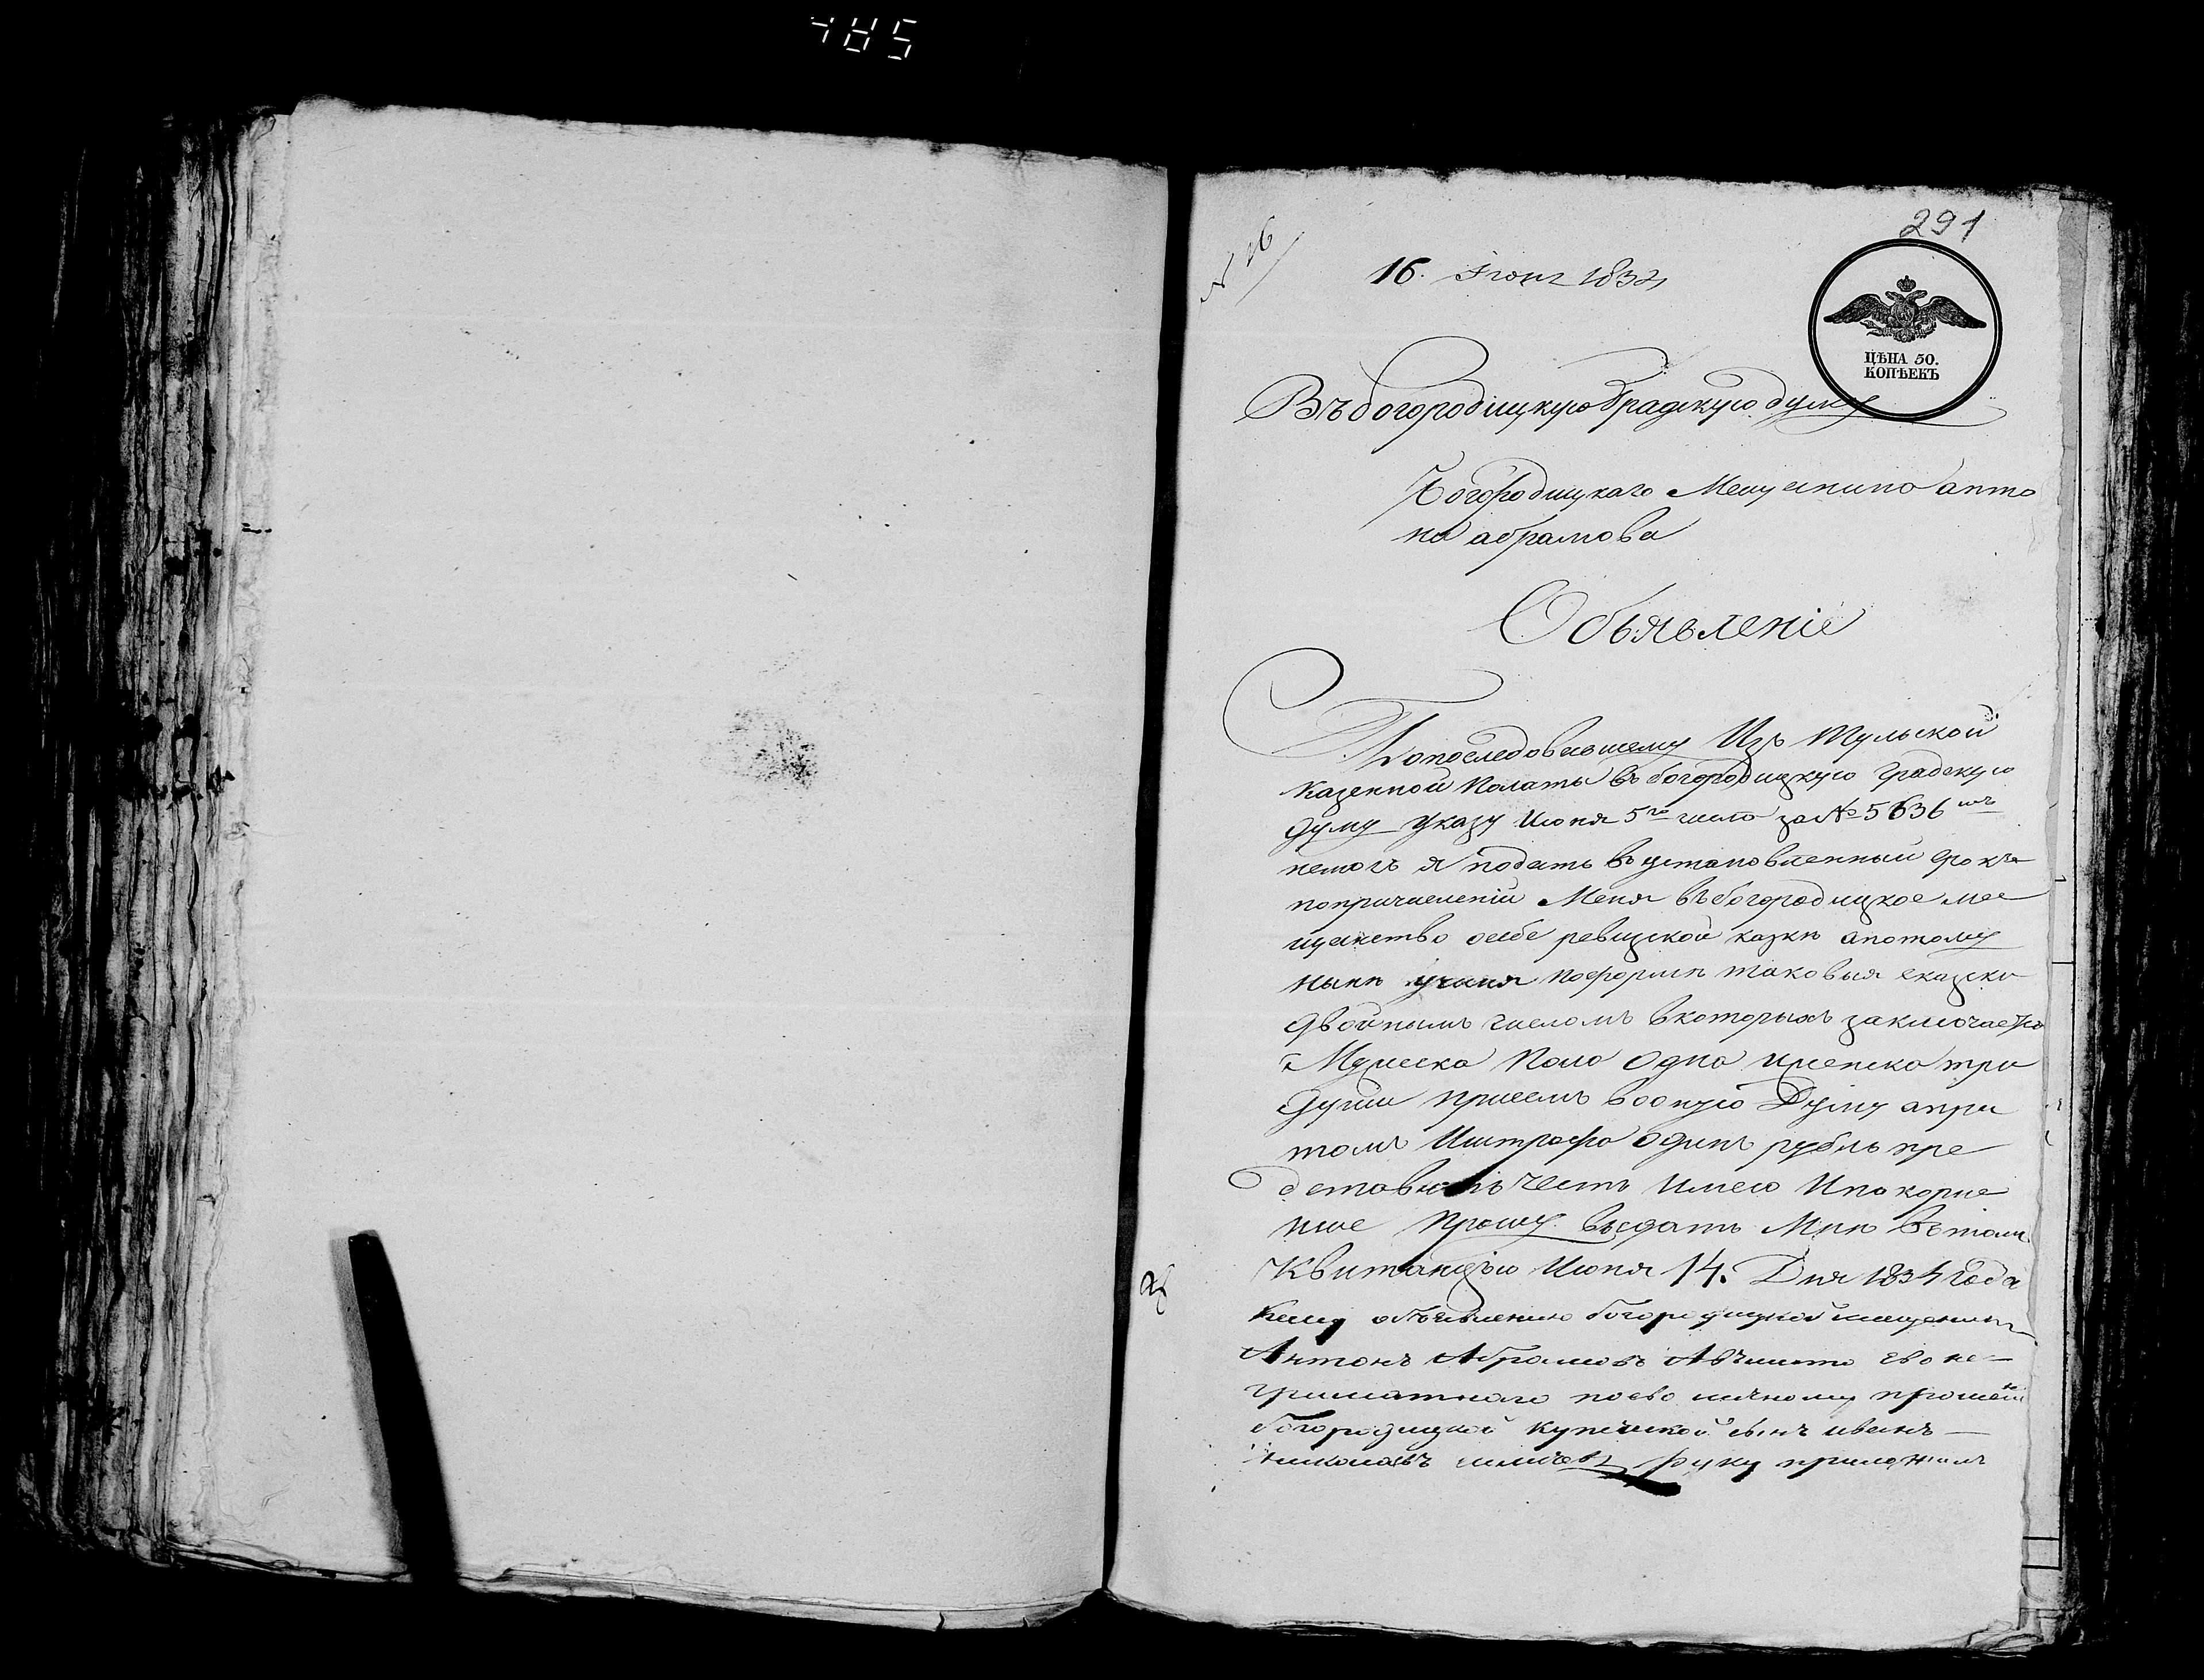 485
291
16. Іюня 1834
ЦѢНА 50.
КОПѢЕКЪ
Въ богородицкую Градскую думу
Богородицкаго Мещенина анто
на абрамова
Объявленіе
Попоследовавшему Изъ Тульской
Казенной Палаты въ богородицкую Градскую
думу Указу Июня 5го числа за № 5636мъ
немогъ я подать въ установленный срокъ
попричислении Меня въ богородицкое ме
щенство осебе ревизской казки апотому
ныне поформе таковыя сказки
двойнымъ числомъ вкоторыхъ заключается
Мужеска Пола Одна иженска три
души присемъ вооную Думу апри
томъ Иштрафа одинъ рубль пре
дставить честь имею Ипокорне
нше прошу выдать Мне Втомъ
Квитанцыю Июня 14. Дня 1834 Года
Ксему объявлению богородицкой мещенинъ
Антонъ Абрамовъ Авместо ево не
граматнаго поево личному прошению
богородицкой купеческой сынъ иванъ
руку приложилъ